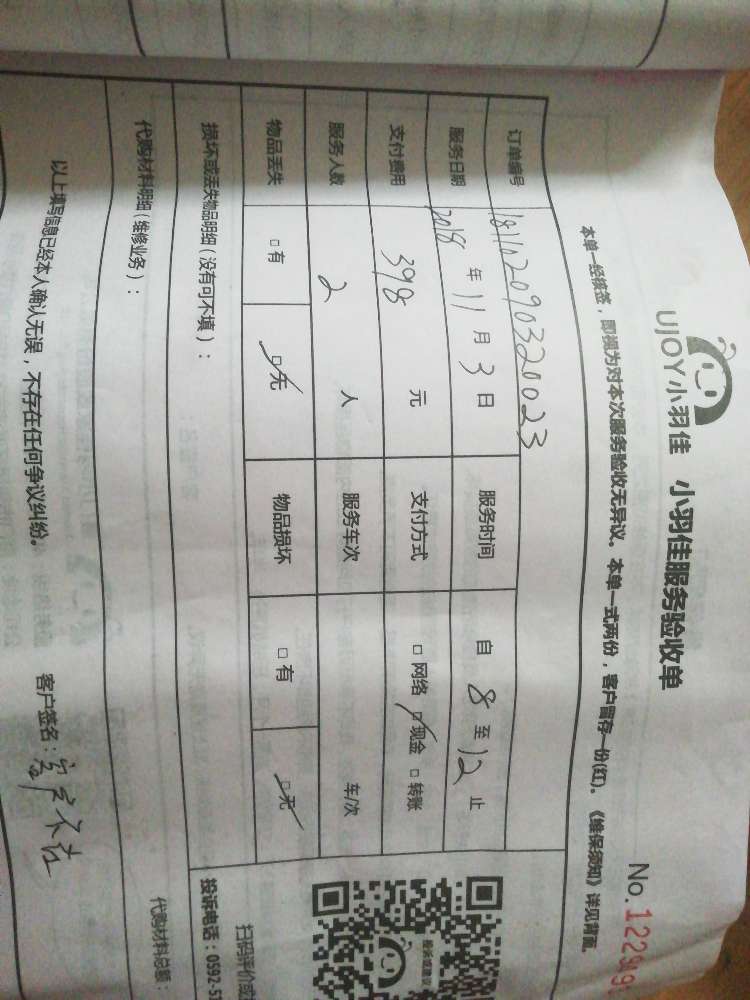 UJOY小羽佳 小羽佳服务验收单
No.122949
本单一经接签，即视为对本次服务验收无异议。本单一式两份，客户留存一份(红)。《维保须知》详见背面。
订单编号 181102090320023
服务日期 2018 年 11 月 3 日 服务时间 自 8 至 12 止
支付费用 398 元 支付方式 □ 网络 ☑ 现金 □ 转账
服务人数 2 人 服务车次 车/次
物品丢失 □ 有 ☑ 无 物品损坏 □ 有 ☑ 无
损坏或丢失物品明细（没有可不填）：
扫码评价或
投诉或建议
投诉电话：0592-5
代购材料明细(维修业务)：
代购材料总额：
以上填写信息已经本人确认无误，不存在任何争议纠纷。 客户签名：客户不在